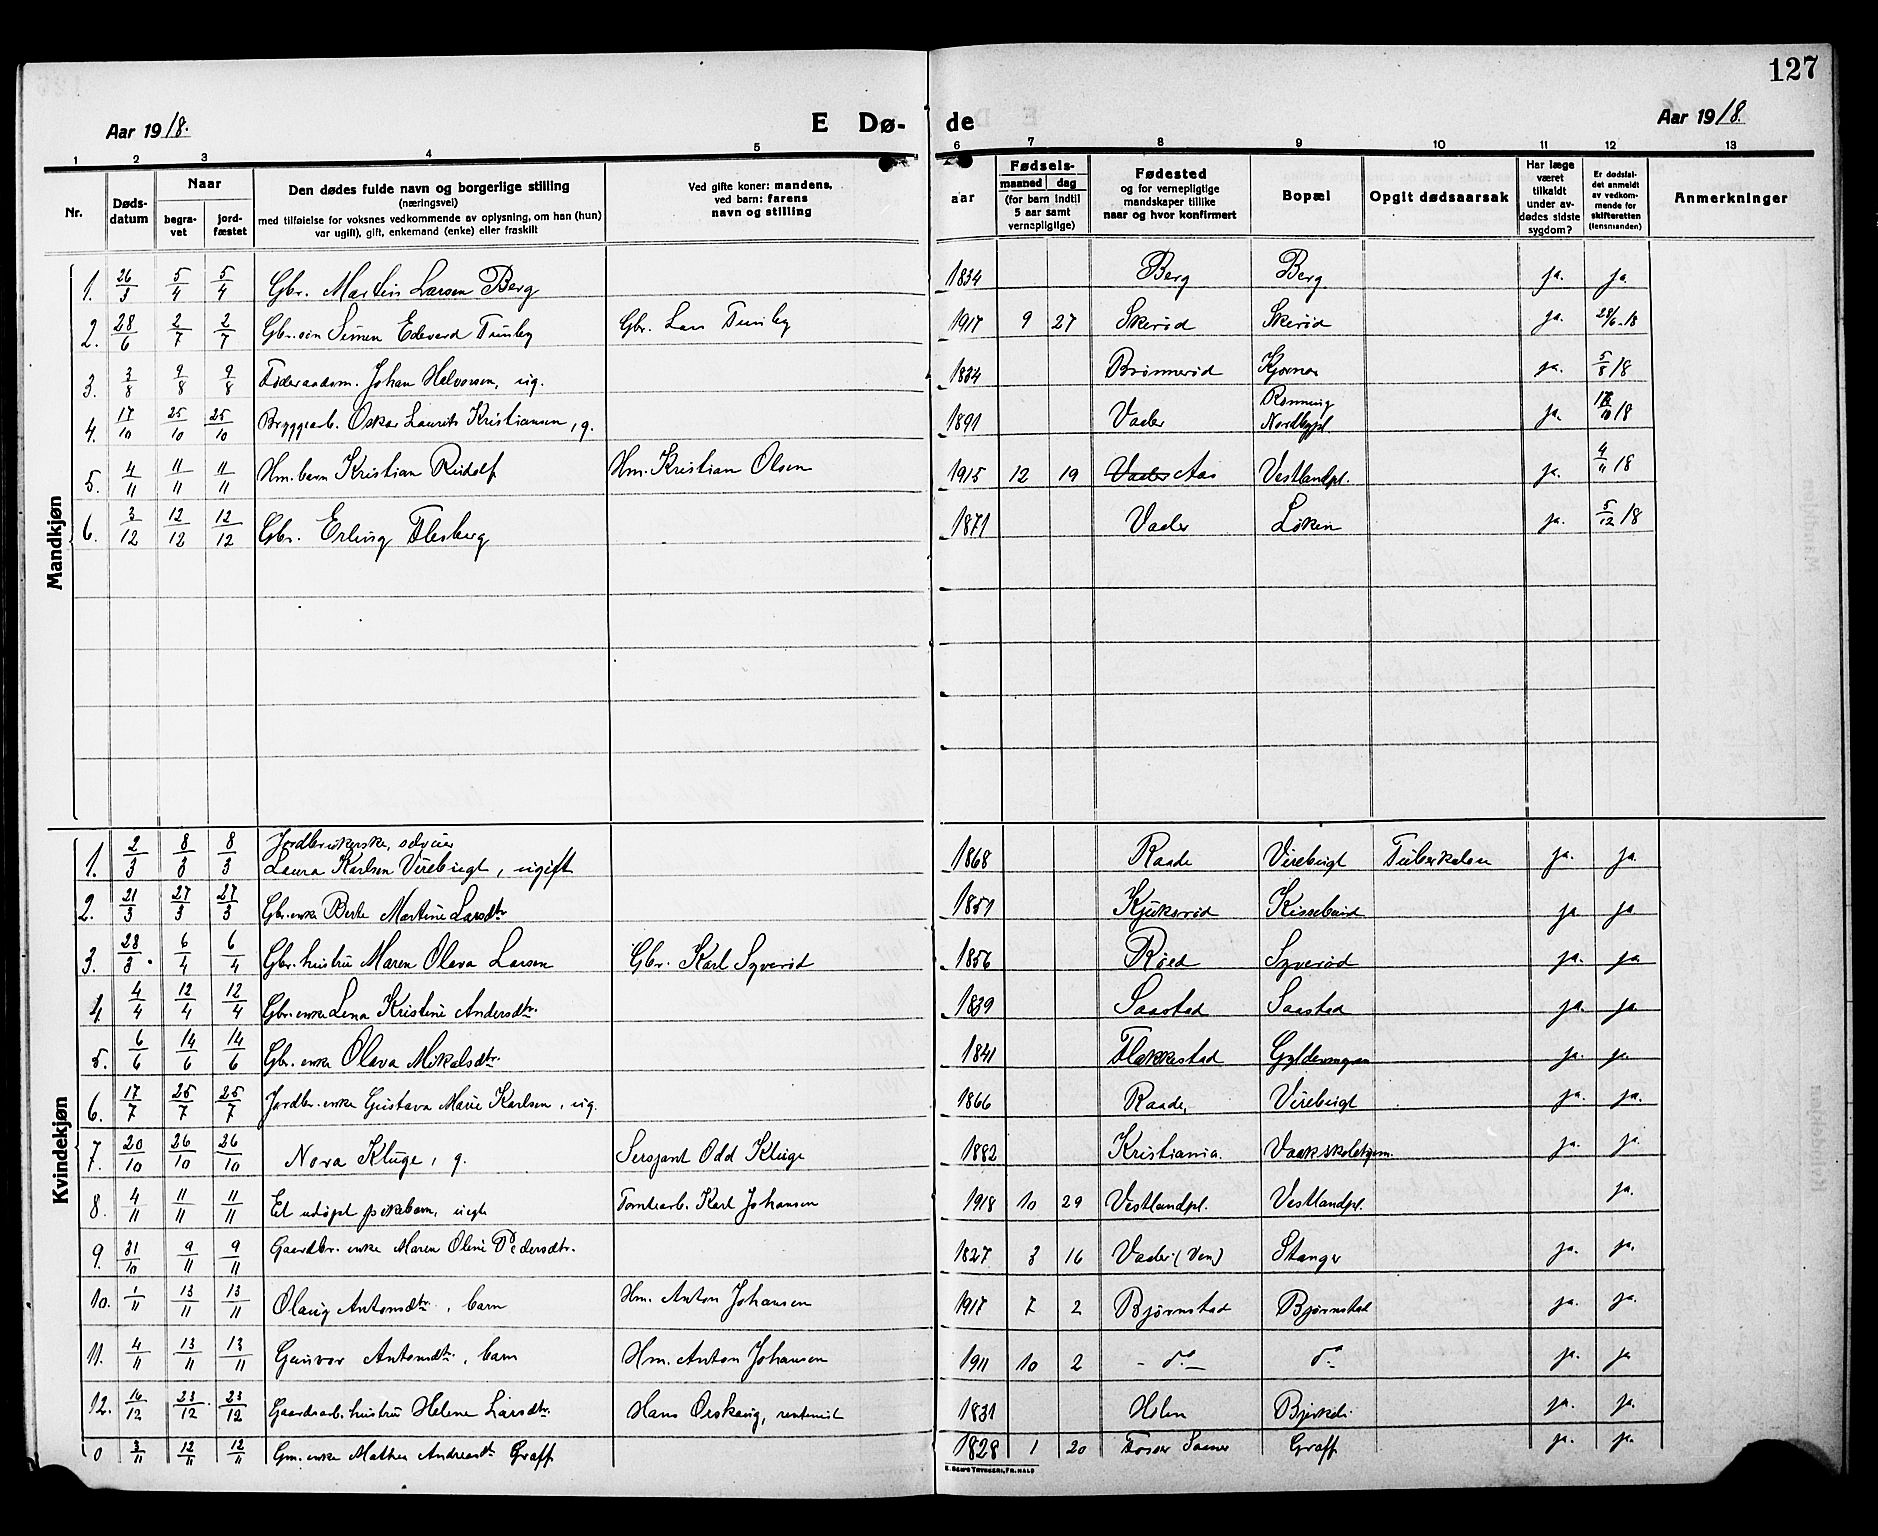 127
Aar 1918.
E Dø-
de
Aar 1918.
1 2 3 4 5 6 7 8 9 10 11 12 13
Nr.
Døds-
datum
Naar
begra-
vet
jord-
fæstet
Den dødes fulde navn og borgerlige stilling
(næringsvei)
med tilføielse for voksnes vedkommende av oplysning, om han (hun)
var ugift, gift, enkemand (enke) eller fraskilt
Ved gifte koner: mandens,
ved barn: farens
navn og stilling
Fødsels-
aar
maaned dag
(for barn indtil
5 aar samt
vernepligtige)
Fødested
og for vernepligtige
mandskaper tillike
naar og hvor konfirmert
Bopæl
Opgit dødsaarsak
Har læge
været
tilkaldt
under av-
dødes sidste
sygdom?
Er dødsfal-
det anmeldt
av vedkom-
mende for
skifteretten
(lensmanden)
Anmerkninger
Mandkjøn
1. 26/3 5/4 5/4 Gbr. Martin Larsen Berg 1834 Berg Berg ja. ja.
2. 28/6 2/7 2/7 Gbr.søn Simen Edevard Tunby Gbr. Lars Tunby 1917 9 27 Skerød Skerød ja. 28/6-18
3. 3/8 9/8 9/8 Føderaadsm. Johan Halvorsen, ug. 1834 Brønnerød Kjørnes ja. 5/8 18
4. 17/10 25/10 25/10 Bryggearb. Oskar Laurits Kristiansen, g. 1891 Vaaler Rønning Nordbypl. ja. /10 18
5. 4/11 11/11 11/11 Hm.barn Kristian Rudolf Hm. Kristian Olsen 1915 12 19 Vaaler Aas Vestlandpl. ja. 4/11 18
6. 3/12 12/12 12/12 Gbr. Erling Flesberg 1871 Vaaler Løken ja. 5/12 18
Kvindekjøn
1. 2/3 8/3 8/3 Jordbrukerske, selveier
Laura Karlsen Virebugt, ugift 1868 Raade Virebugt Tuberkulose ja. ja.
2. 21/3 27/3 27/3 Gbr.enke Berte Martine Larsdtr 1851 Kjuksrød Kissebund ja ja
3. 28/3. 6/4 6/4 Gbr.hustru Maren Olava Larsen Gbr. Karl Syverød 1856 Røed Syverød ja. ja
4 4/4 12/4 12/4 Gbr.enke Lena Kristine Andersdtr. 1839 Saastad Saastad ja. ja.
5. 6/6 14/6 14/6 Gbr. enke Olava Mikalsdtr. 1841 Flakkestad ja. ja.
6. 17/7 25/7 25/7 Jordbr.enke Gustava Marie Karlsen, ug. 1866 Raade, Virebugt ja. ja.
7. 20/10 26/10 26/10 Nora Kluge, g. Sersjant Odd Kluge 1882 Kristiania. ja. ja.
8. 4/11 11/11 11/11 Et udøpt pikebarn, uegte Tomtearb. Karl Johansen 1918 10 29 Vestlandpl. Vestlandpl. ja.
9. 31/10 9/11 9/11 Gaardbr. enke Maren Oline Pedersdtr. 1827 3 16 Vaaler (Ven) Stanger ja. ja.
10. 1/11 13/11 13/11 Olaug Antonsdtr., barn Hm. Anton Johansen 1917 7 2 Bjørnstad Bjørnstad ja. ja.
11. 4/11 13/11 13/11 Gunvor Antonsdtr., barn Hm. Anton Johansen 1911 10 2 - do - do ja. ja
12. 16/12 23/12. 23/12 Gaardsarb. hustru Helene Larsdtr. Hans Ørskaug, rentenist 1831 Hølen Bjerkeli ja. ja.
0 3/11 12/11 12/11 Gm. enke Mathea Andreasdtr Graff 1828 1 20 Graff ja. ja.
E. SEM'S TRYKKERI, FR.HALD